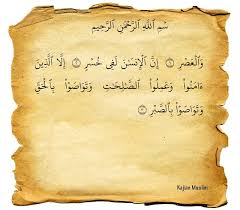 سْمِ اللَّهِ الرَّحْمَٰنِ الرَّحِيمِ
وَٱلْعَصْرِ ۝١ إِنَّ ٱلْإِنسَٰنَ لَفِى خُسْرٍ ۝٢ إِلَّا ٱلَّذِينَ
ءَامَنُوا۟ وَعَمِلُوا۟ ٱلصَّٰلِحَٰتِ وَتَوَاصَوْا۟ بِٱلْحَقِّ
وَتَوَاصَوْا۟ بِٱلصَّبْرِ ۝٣
Kajian Muslim